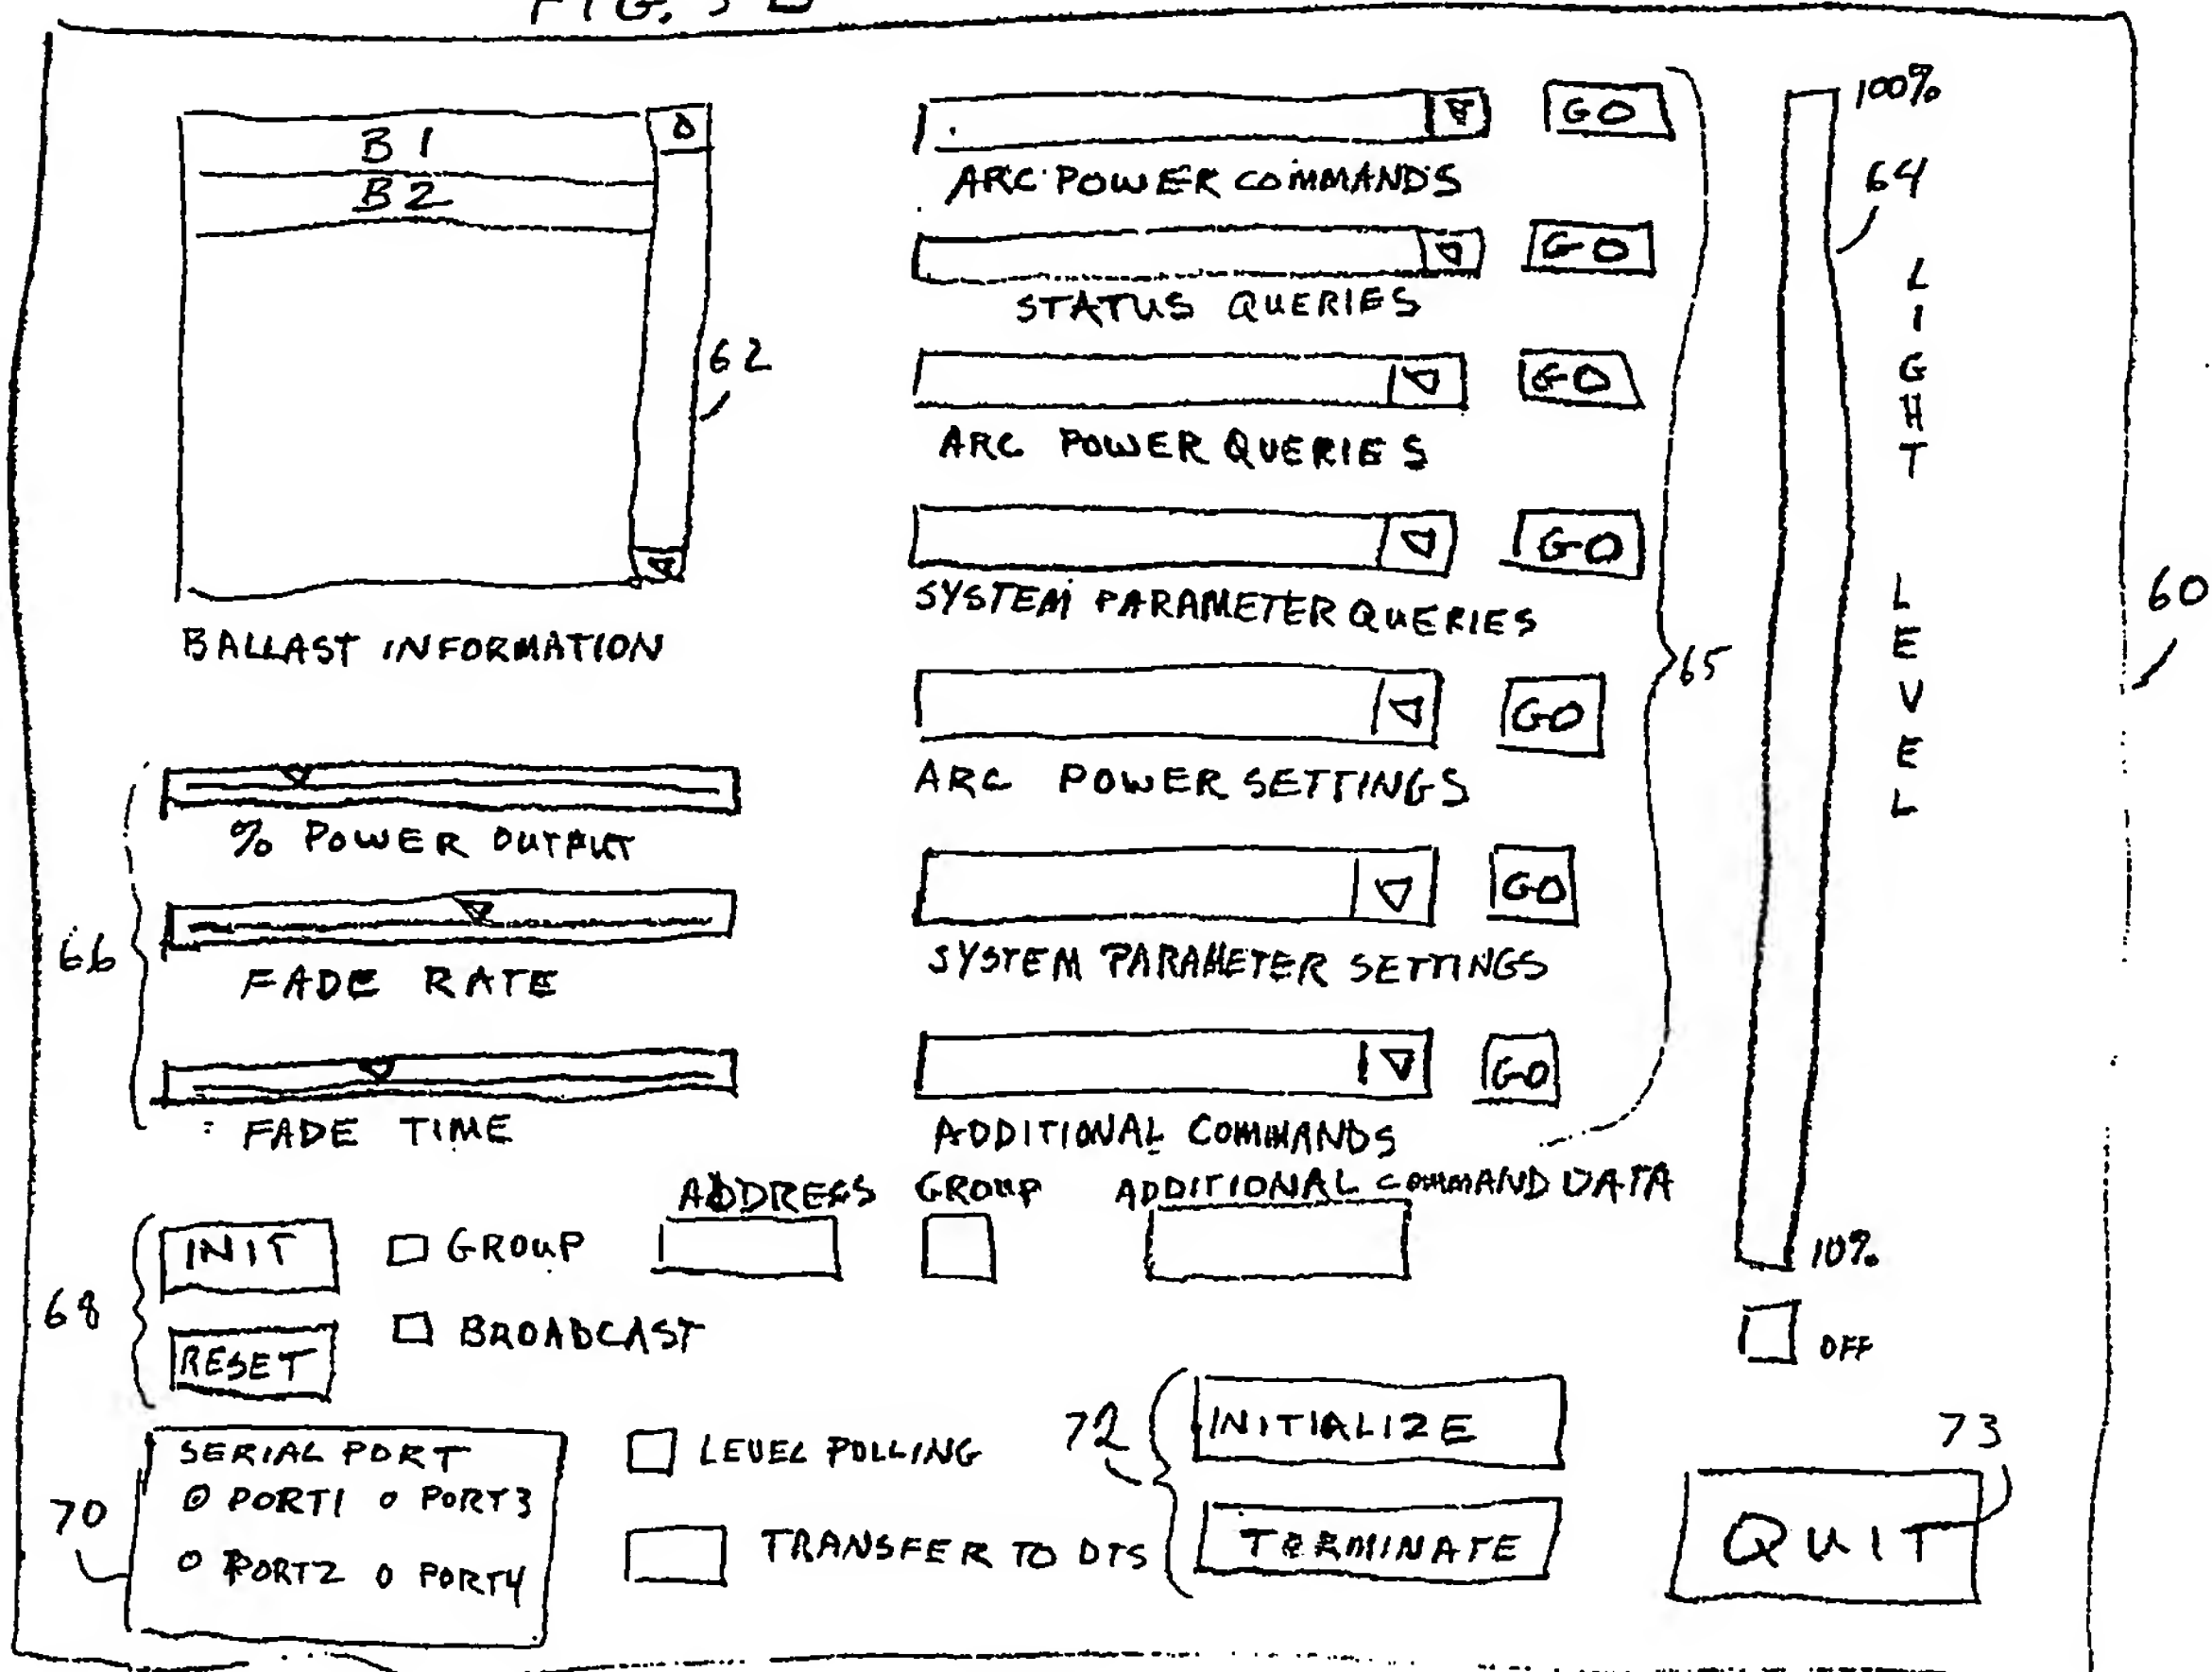 FIG. 5B
B1
B2
62
BALLAST INFORMATION
GO
ARC POWER COMMANDS
GO
STATUS QUERIES
GO
ARC POWER QUERIES
GO
SYSTEM PARAMETER QUERIES
GO
ARC POWER SETTINGS
GO
SYSTEM PARAMETER SETTINGS
GO
ADDITIONAL COMMANDS
65
100%
64
LIGHT LEVEL
60
10%
OFF
66
% POWER OUTPUT
FADE RATE
FADE TIME
ADDRESS GROUP ADDITIONAL COMMAND DATA
68
INIT GROUP
RESET BROADCAST
70
SERIAL PORT
PORT1 PORT3
PORT2 PORT4
LEVEL POLLING
TRANSFER TO DTS
72
INITIALIZE
TERMINATE
73
QUIT